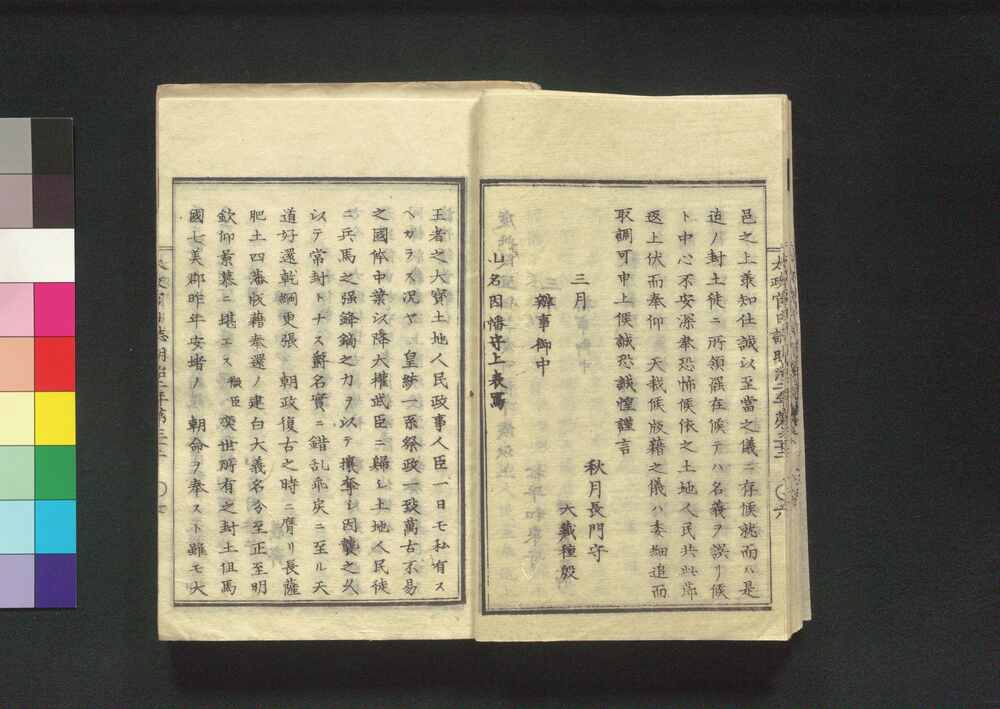 邑之上奉知仕誠以至當之儀ニ存候就而ハ是
迠ノ封土徒ニ所領罷在候テハ名義ヲ誤リ候
ト中心不安深奉恐怖候依之土地人民共此節
返上伏而奉仰　天裁候版藉之儀ハ委細追而
取調可申上候誠恐誠惶謹言
秋月長門守
三月　大蔵種殷
辨事御中
山名因幡守上表寫
王者之大寶土地人民政事人臣一日モ私有ス
ヘカラス況ヤ　皇綂一系祭政一致萬古不易
之國体中葉以降大權武臣ニ歸シ土地人民徒
ニ兵馬之强鋒鏑之力ヲ以テ攘奪シ因襲之久
以テ常封ト ナス爵名實ニ錯乱乖戾ニ至ル天
道好還乾綱更張　朝政復古之時ニ膺リ長薩
肥土四藩版藉奉還ノ建白大義名分至正至明
欽仰景慕ニ堪エス　微臣　奕世所有之封土但馬
國七美郡昨年安堵ノ　朝命ヲ奉スト雖モ大